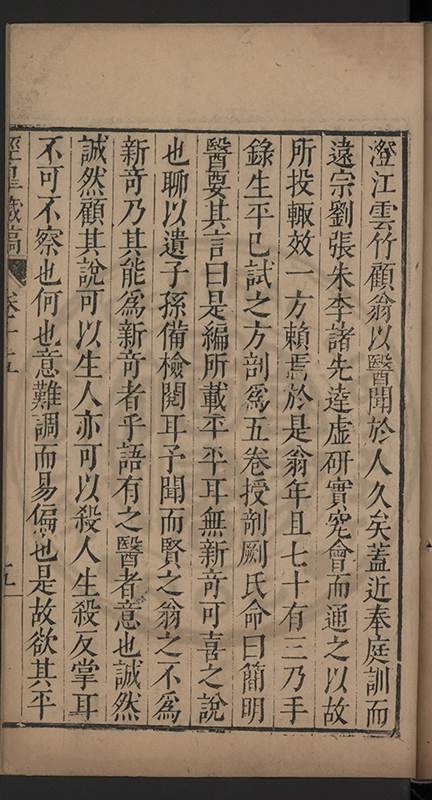 澄江雲竹顧翁以醫聞於人久矣蓋近奉庭訓而
遠宗劉張朱李諸先達虛研實究會而通之以故
所投輒效一方賴焉於是翁年且七十有三乃手
錄生平已試之方剖爲五卷授剞劂氏命曰簡明
醫要其言曰是編所載平平耳無新竒可喜之說
也聊以遺子孫備檢閱耳予聞而賢之翁之不爲
新竒乃其能爲新竒者乎語有之醫者意也誠然
誠然顧其說可以生人亦可以殺人生殺反掌耳
不可不察也何也意難調而易偏也是故欲其平
涇臯藏稿
卷十五
五